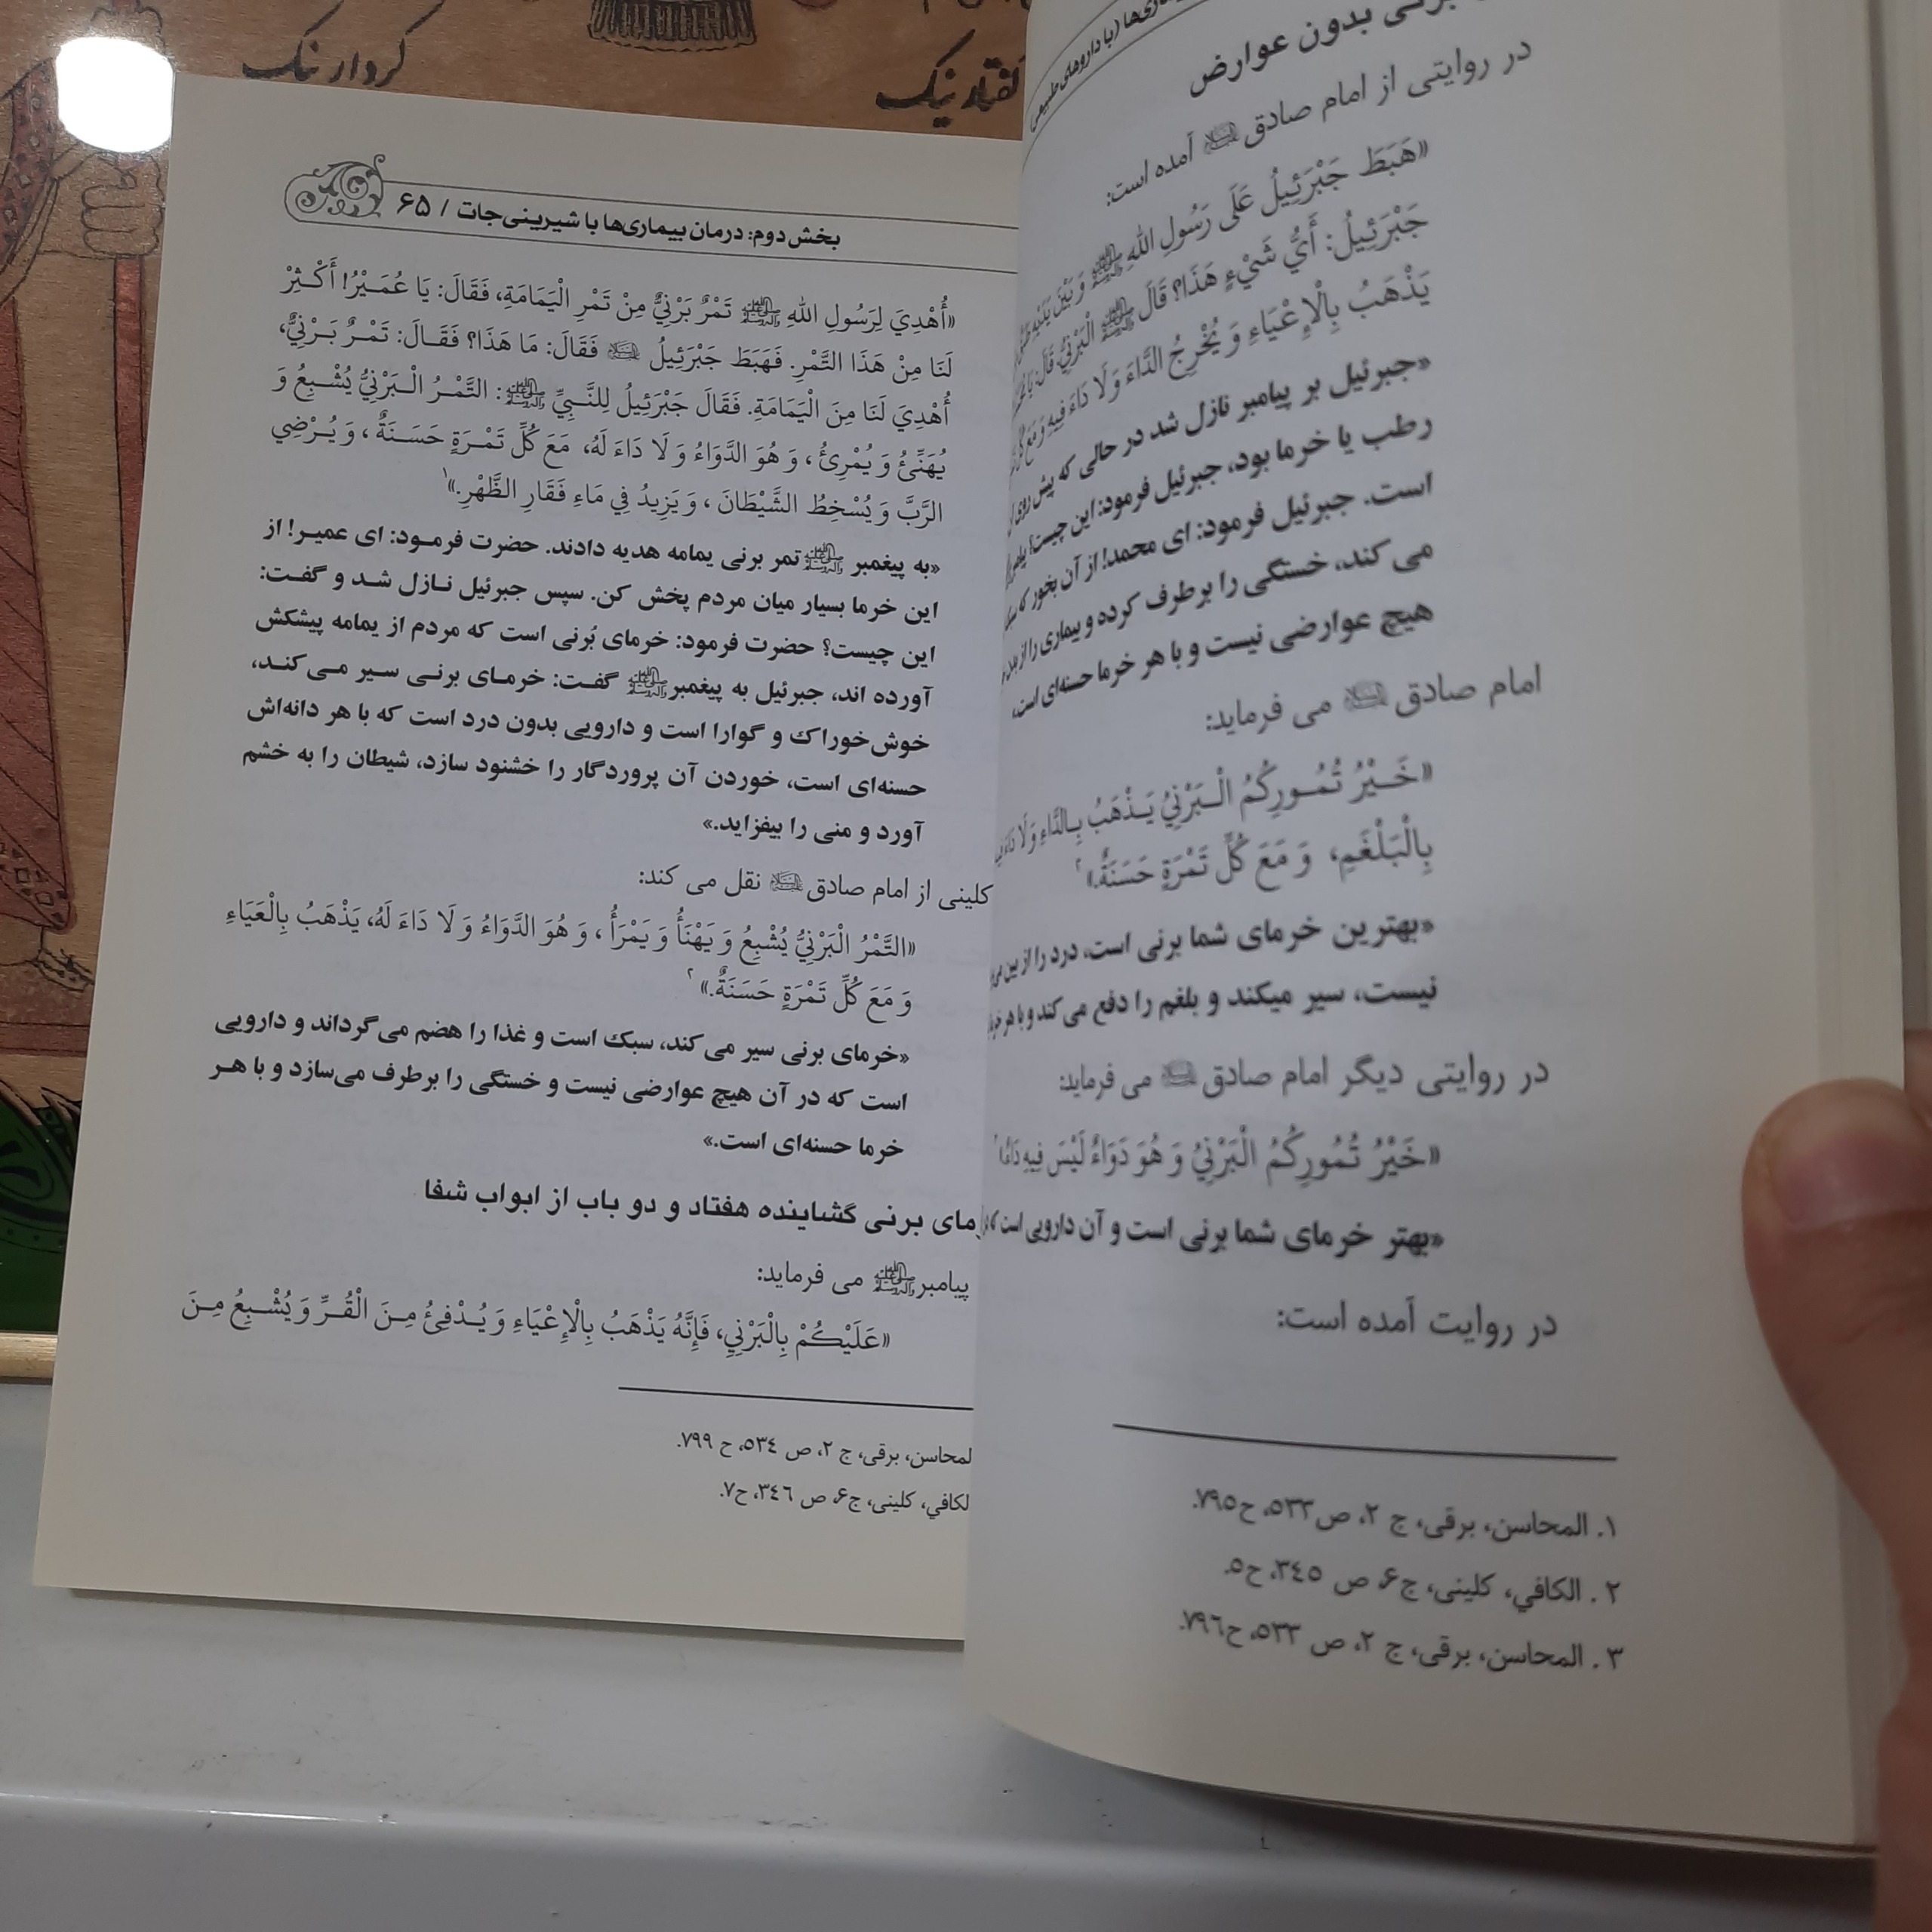 کردار نیک
گفتار نیک
بدون عوارض
در روایتی از امام صادق آمده است:
«هَبَطَ جَبْرَئِيلُ عَلَى رَسُولِ اللهِ وَ بَيْنَ يَدَيْهِ
جَبْرَئِيلُ: أَيُّ شَيْءٍ هَذَا؟ قَالَ الْبَرْنِيُّ، قَالَ
يَذْهَبُ بِالْإِعْيَاءِ وَ يُخْرِجُ الدَّاءَ وَ لَا دَاءَ فِيهِ وَ مَعَ
«جبرئیل بر پیامبر نازل شد در حالی که پیش روی
رطب یا خرما بود، جبرئیل فرمود: این چیست؟
است. جبرئیل فرمود: ای محمد! از آن بخور که
می کند، خستگی را برطرف کرده و بیماری را از
هیچ عوارضی نیست و با هر خرما حسنه‌ای است،
امام صادق می فرماید:
«خَـيْرُ تُمُـورِكُمُ الْـبَرْنِيُ يَـذْهَبُ بِـالدَّاءِ وَ لَا دَاءَ
بِالْبَلْغَمِ، وَ مَعَ كُلِّ تَمْرَةٍ حَسَنَةٌ.»۲
«بهترین خرمای شما برنی است، درد را از بین
نیست، سیر میکند و بلغم را دفع می کند و با هر
در روایتی دیگر امام صادق می فرماید:
«خَيْرُ تُمُورِكُمُ الْبَرْنِيُ وَ هُوَ دَوَاءٌ لَيْسَ فِيهِ
«بهتر خرمای شما برنی است و آن دارویی است که
در روایت آمده است:
۱. المحاسن، برقی، ج ۲، ص۵۳۳، ح۷۹۵.
۲. الکافي، کلینی، ج۶، ص ۳۴۵، ح۵.
۳. المحاسن، برقی، ج ۲، ص ۵۳۳، ح۷۹۶.
بخش دوم: درمان بیماری‌ها با شیرینی‌جات / ۶۵
«أُهْدِيَ لِرَسُولِ اللهِ ﷺ تَمْرٌ بَرْنِيٌّ مِنْ تَمْرِ الْيَمَامَةِ، فَقَالَ: يَا عُمَـيْرُ! أَكْـثِرْ
لَنَا مِنْ هَذَا التَّمْرِ. فَهَبَطَ جَبْرَئِيلُ فَقَالَ: مَا هَذَا؟ فَقَـالَ: تَمْـرٌ بَـرْنِيٌّ،
أُهْدِيَ لَنَا مِنَ الْيَمَامَةِ. فَقَالَ جَبْرَئِيلُ لِلنَّـبِيِّ ﷺ: التَّمْـرُ الْـبَرْنِيُّ يُشْـبِعُ وَ
يُهَنِّئُ وَ يُمْرِئُ، وَ هُوَ الدَّوَاءُ وَ لَا دَاءَ لَهُ، مَعَ كُلِّ تَمْـرَةٍ حَسَـنَةٌ، وَ يُـرْضِي
الرَّبَّ وَ يُسْخِطُ الشَّيْطَانَ، وَ يَزِيدُ فِي مَاءِ فَقَارِ الظَّهْرِ.»۱
«به پیغمبر ﷺ تمر برنی یمامه هدیه دادند. حضرت فرمـود: ای عمیـر! از
این خرما بسیار میان مردم پخش کن. سپس جبرئیل نـازل شـد و گفـت:
این چیست؟ حضرت فرمود: خرمای بُرنی است که مردم از یمامه پیشکش
آورده اند، جبرئیل به پیغمبر ﷺ گفـت: خرمـای برنـی سـیر مـی‌کنـد،
خوش‌خوراک و گوارا است و دارویی بدون درد است که با هر دانه‌اش
حسنه‌ای است، خوردن آن پروردگار را خشنود سازد، شیطان را به خشم
آورد و منی را بیفزاید.»
کلینی از امام صادق نقل می کند:
«التَّمْرُ الْبَرْنِيُّ يُشْبِعُ وَ يَهْنَأُ وَ يَمْرَأُ، وَ هُوَ الدَّوَاءُ وَ لَا دَاءَ لَهُ، يَذْهَبُ بِالْعَيَاءِ
وَ مَعَ كُلِّ تَمْرَةٍ حَسَنَةٌ.»۲
«خرمای برنی سیر می‌کند، سبک است و غذا را هضم می‌گرداند و دارویی
است که در آن هیچ عوارضی نیست و خستگی را برطرف می‌سازد و با هـر
خرما حسنه‌ای است.»
رمای برنی گشاینده هفتاد و دو باب از ابواب شفا
پیامبر ﷺ می فرماید:
«عَلَيْكُمْ بِالْبَرْنِي، فَإِنَّهُ يَذْهَبُ بِالْإِعْيَاءِ وَ يُـدْفِئُ مِـنَ الْقُـرِّ وَ يُشْـبِعُ مِـنَ
لمحاسن، برقی، ج ۲، ص ۵۳۴، ح ۷۹۹.
لکافي، کلینی، ج۶، ص ۳۴۶، ح۷.